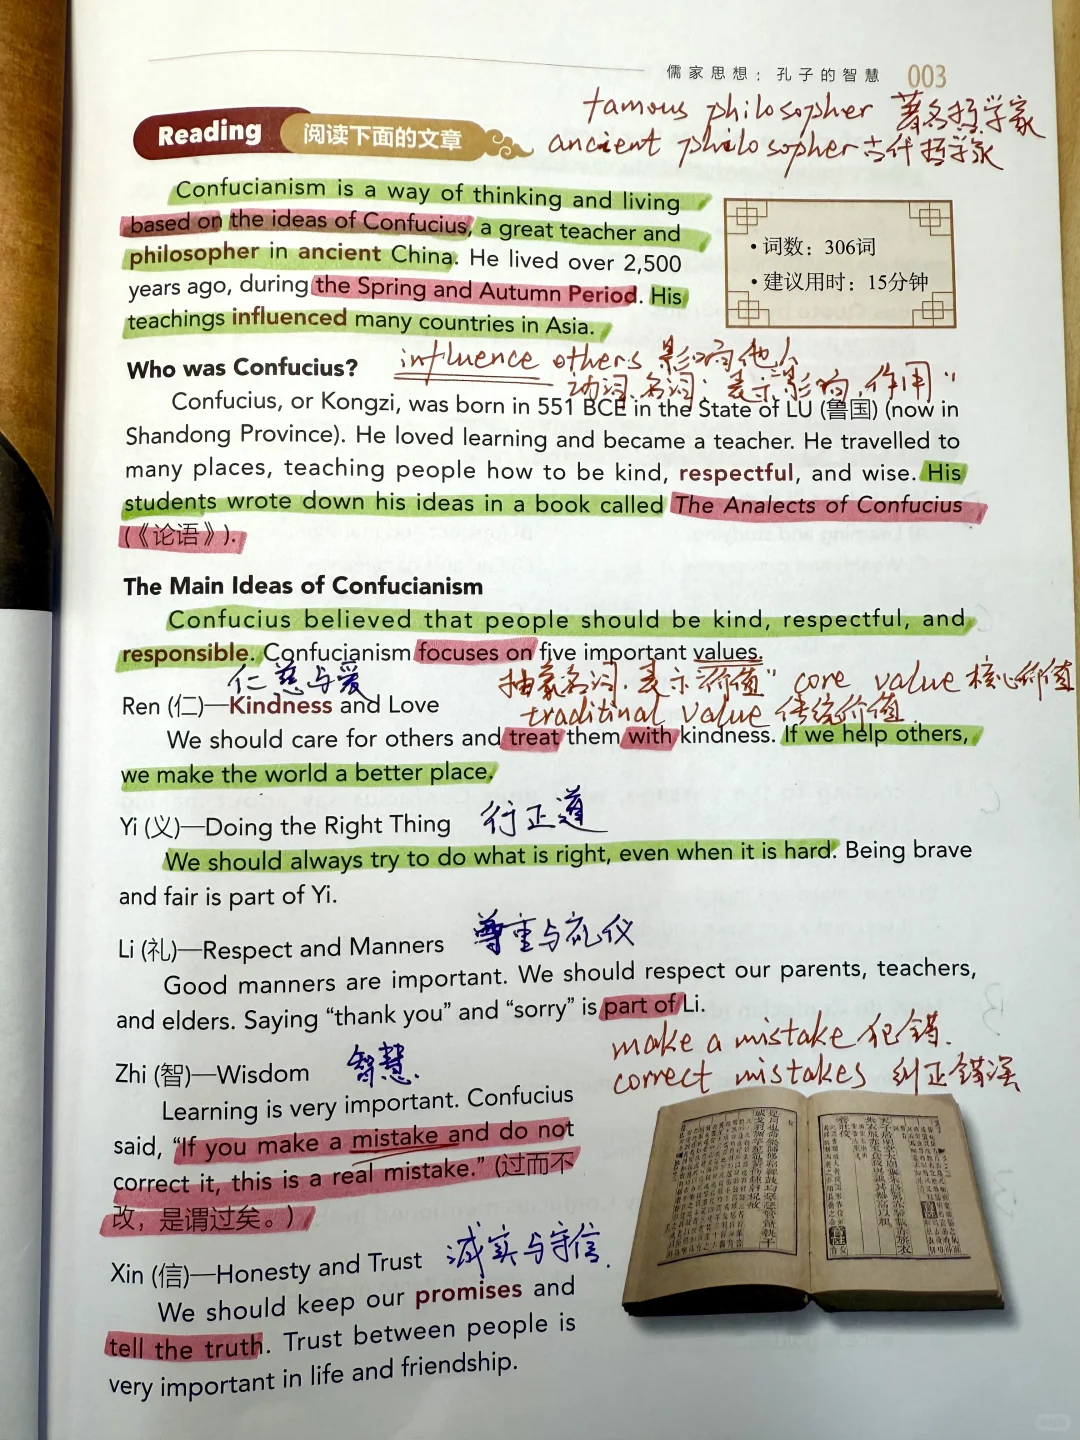 儒家思想：孔子的智慧 003
famous philosopher 著名哲学家
Reading 阅读下面的文章
ancient philosopher 古代哲学家
Confucianism is a way of thinking and living
based on the ideas of Confucius, a great teacher and
philosopher in ancient China. He lived over 2,500
years ago, during the Spring and Autumn Period. His
teachings influenced many countries in Asia.
• 词数：306词
• 建议用时：15分钟
Who was Confucius?
influence others 影响他人
动词.名词：表示"影响,作用"
Confucius, or Kongzi, was born in 551 BCE in the State of LU (鲁国) (now in
Shandong Province). He loved learning and became a teacher. He travelled to
many places, teaching people how to be kind, respectful, and wise. His
students wrote down his ideas in a book called The Analects of Confucius
(《论语》).
The Main Ideas of Confucianism
Confucius believed that people should be kind, respectful, and
responsible. Confucianism focuses on five important values.
仁慈与爱
抽象名词.表示"价值" core value 核心价值
traditinal value 传统价值
Ren (仁)—Kindness and Love
We should care for others and treat them with kindness. If we help others,
we make the world a better place.
Yi (义)—Doing the Right Thing 行正道
We should always try to do what is right, even when it is hard. Being brave
and fair is part of Yi.
Li (礼)—Respect and Manners 尊重与礼仪
Good manners are important. We should respect our parents, teachers,
and elders. Saying “thank you” and “sorry” is part of Li.
make a mistake 犯错.
correct mistakes 纠正错误
Zhi (智)—Wisdom 智慧.
Learning is very important. Confucius
said, “If you make a mistake and do not
correct it, this is a real mistake.” (过而不
改，是谓过矣。)
Xin (信)—Honesty and Trust 诚实与守信.
We should keep our promises and
tell the truth. Trust between people is
very important in life and friendship.